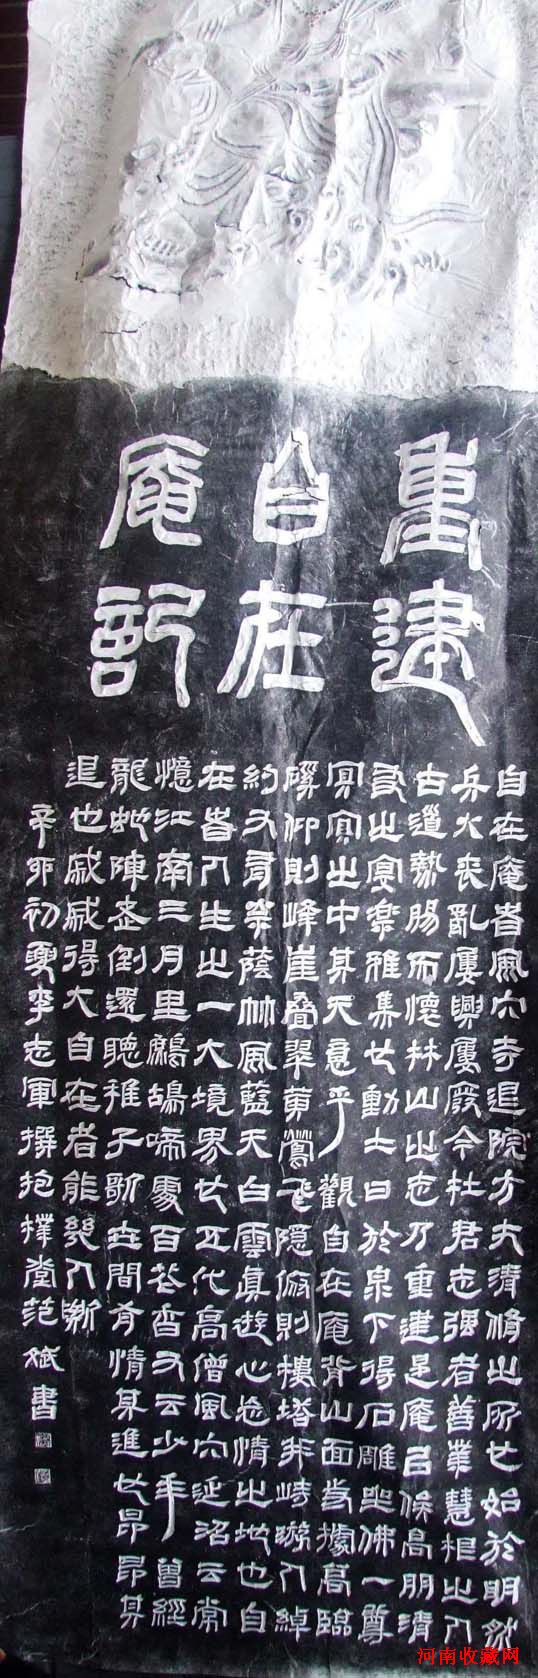 重建
自在
庵記
自在庵者風穴寺退院方丈清脩之所也始於明然
兵火喪亂屢興屢廢今杜君志强者善業慧根之人
古道熱腸而懷林山之志乃重建是庵㠯候高朋清
友之宴樂雅集也動土日於泉下得石雕坐佛一尊
冥冥之中其天意乎觀自在庵背山面壑據高臨
磎仰則峰崖疊翠黄鶯飛隱俯則樓塔非峙游人綽
約又有翠蔭竹風藍天白雲真遊心忘情之地也自
在者人生之一大境界也五代高僧風穴延沼云常
憶江南三月里鷓鴣啼處百花香又云少年曾經
龍虵陣老倒還聽稚子歌世間有情其進也昂昂其
退也戚戚得大自在者能幾人歟
辛卯初夏李志軍撰抱樸堂范斌書
河南收藏网